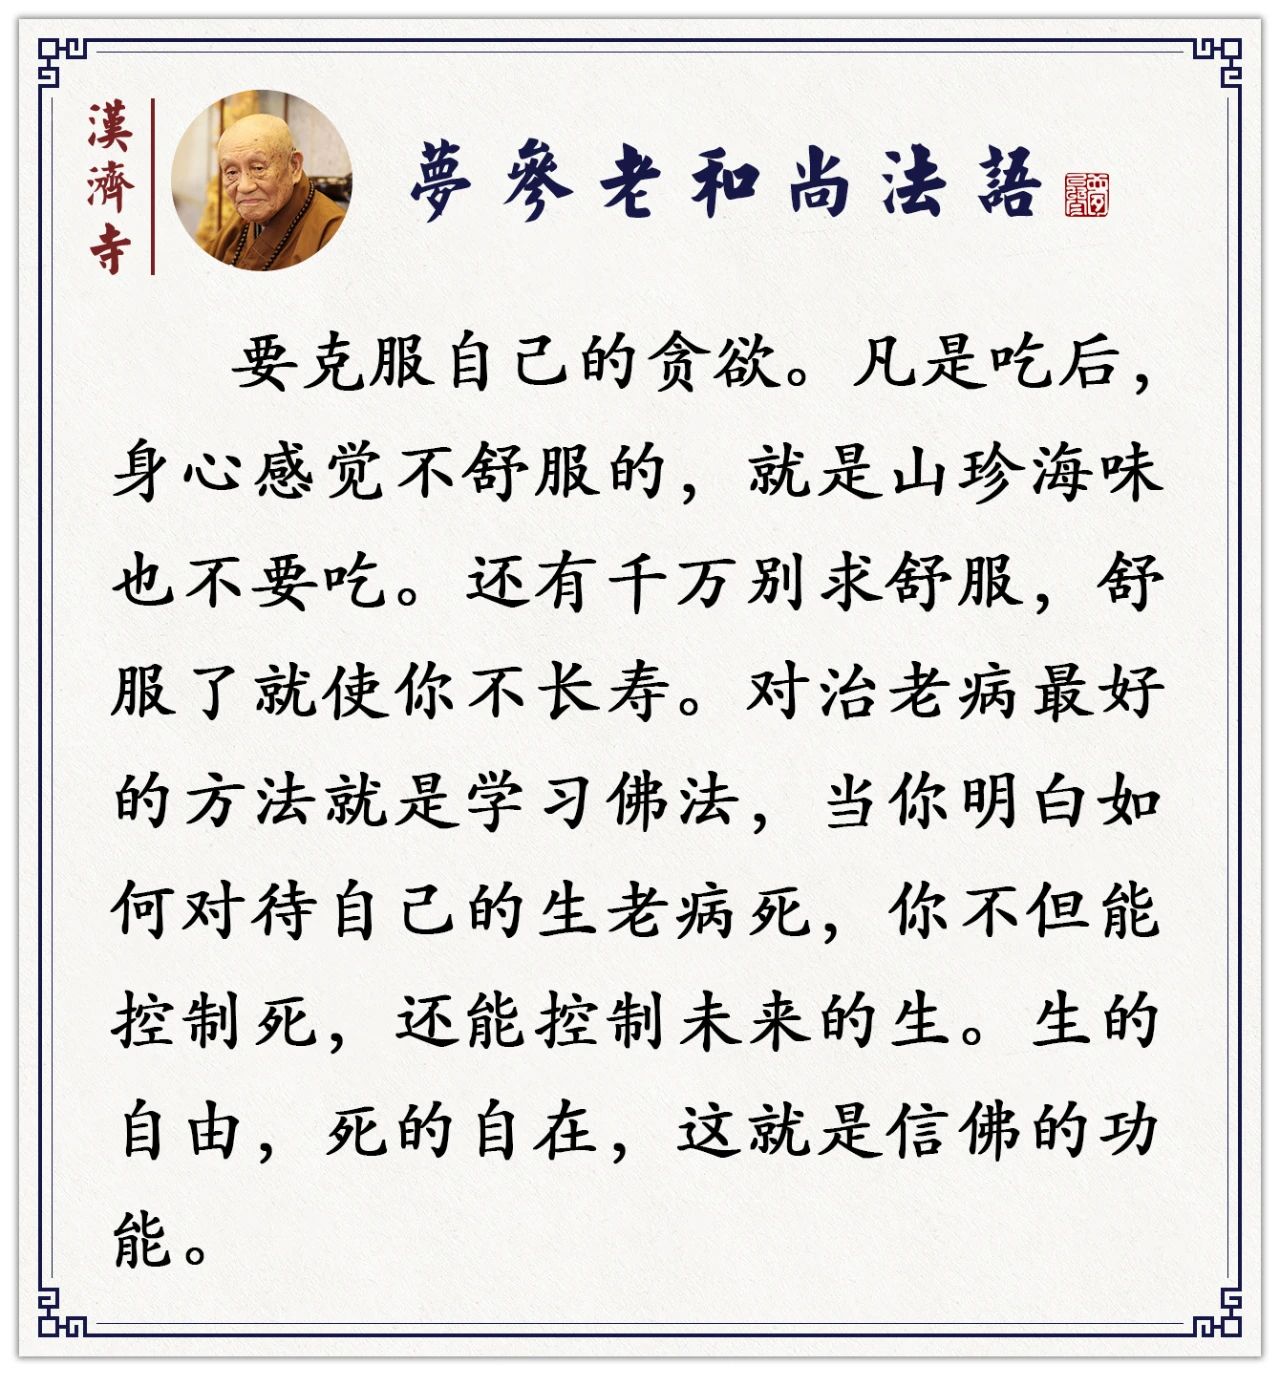 漢濟寺
夢參老和尚法語
要克服自己的贪欲。凡是吃后，
身心感觉不舒服的，就是山珍海味
也不要吃。还有千万别求舒服，舒
服了就使你不长寿。对治老病最好
的方法就是学习佛法，当你明白如
何对待自己的生老病死，你不但能
控制死，还能控制未来的生。生的
自由，死的自在，这就是信佛的功
能。